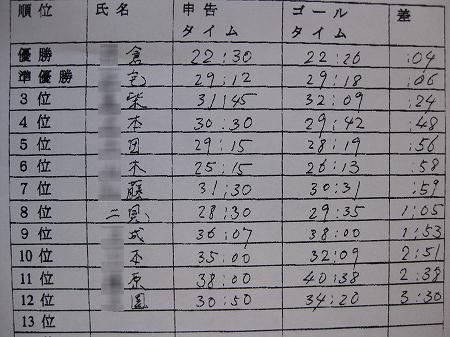 順位 氏名 申告タイム ゴールタイム 差
優勝 倉 22:30 22:26 :04
準優勝 宅 29:12 29:18 :06
3位 柴 31:45 32:09 :24
4位 本 30:30 29:42 :48
5位 田 29:15 28:19 :56
6位 木 25:15 26:13 :58
7位 藤 31:30 30:31 :59
8位 二 28:30 29:35 1:05
9位 成 36:07 38:00 1:53
10位 本 35:00 32:09 2:51
11位 原 38:00 40:38 2:38
12位 園 30:50 34:20 3:30
13位